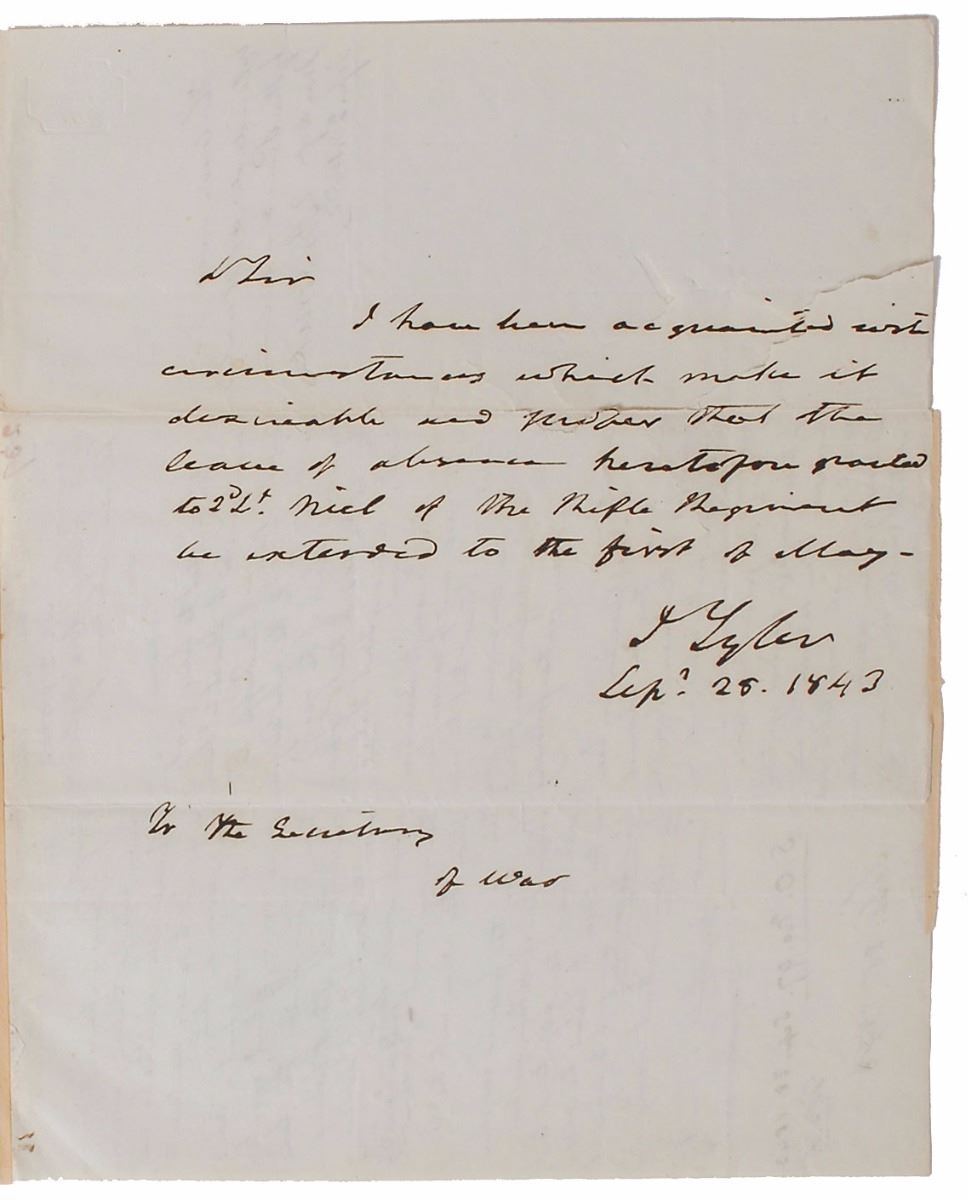 D Sir
I have been acquainted with
circumstances which make it
desireable and proper that the
leave of absence heretofore granted
to 2d Lt. Niel of the Rifle Regiment
be extended to the first of May -
J Tyler
Sepr. 28. 1843
To the Secretary
of War